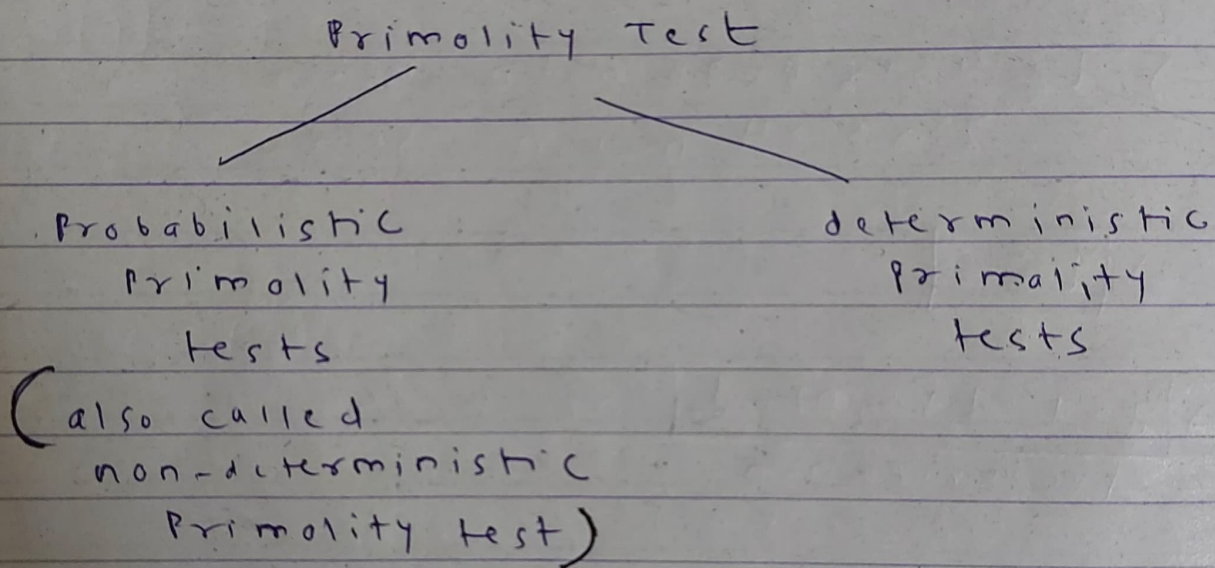 Primolity Test
Probabilistic
Primolity
tests
(also called
non-deterministic
Primolity test)
deterministic
Primality
tests